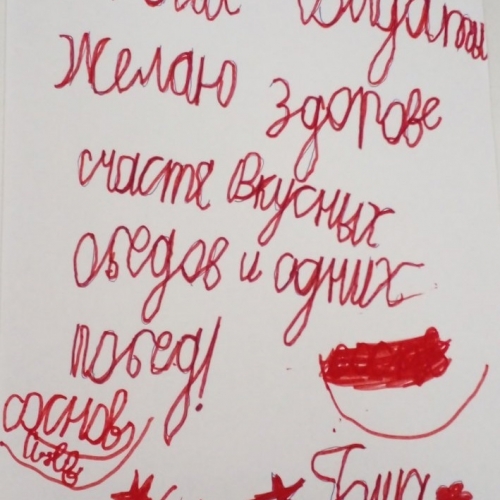 Желаю здорове
счастя вкусных
обедов и одних
побед!
соснов